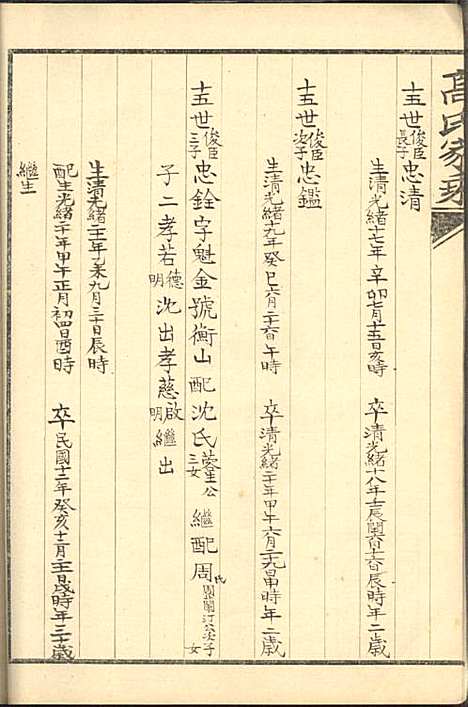 高氏家乘
十五世俊臣長子忠清
生清光緒十七年辛卯七月十五日亥時 卒清光緒十八年壬辰閏六月十六日辰時年二歲
十五世俊臣次子忠鑑
生清光緒十九年癸巳六月二十六日午時 卒清光緒二十年甲午六月二十九日申時年二歲
十五世俊臣三子忠銓字魁金號衡山 配沈氏蓉生公三女 繼配周氏 公次子女
子二孝若德明沈出孝慈啟明繼出
生清光緒二十一年乙未九月三十日辰時
配生光緒二十年甲午正月初四日酉時 卒民國十二年癸亥十二月 日戌時年三十歲
繼生